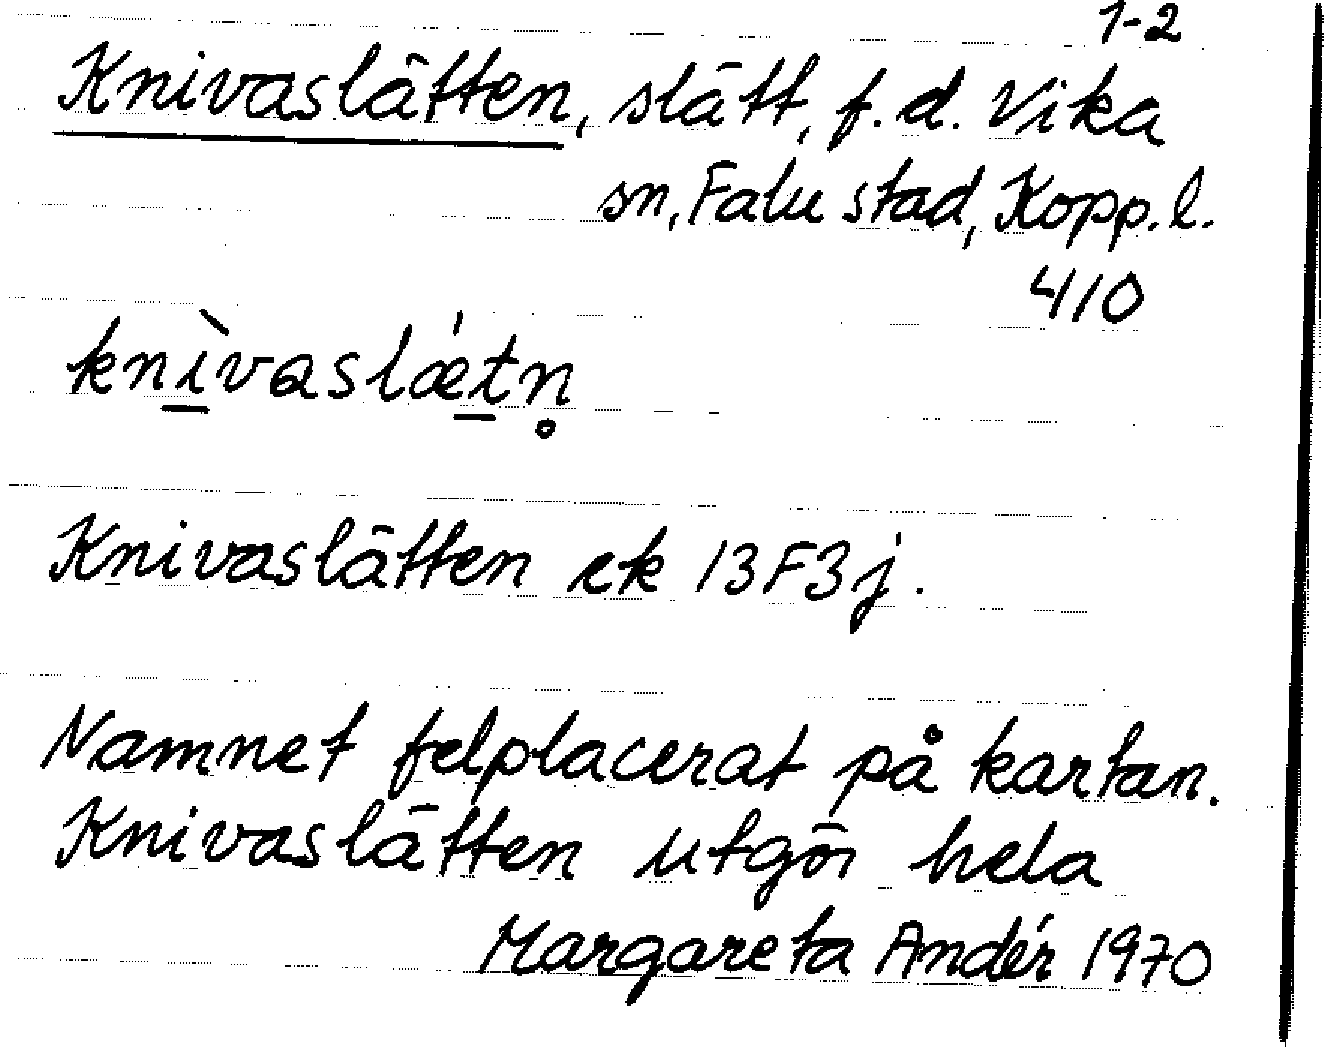 1-2
Knivaslätten, slätt, f.d. Vika
sn, Falu stad, Kopp. l.
410
knìvaslǽtn̥
Knivaslätten ek 13F3j.
Namnet felplacerat på kartan.
Knivaslätten utgör hela
Margareta Andér 1970